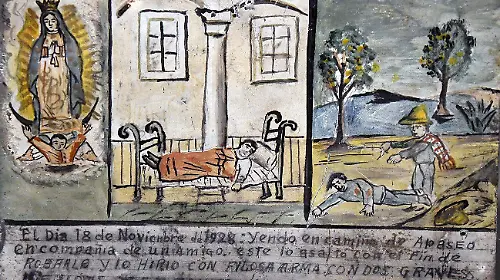 El Dia 18 de Noviembre de 1928: Yendo en camino de APASEO
en compañia de un Amigo. éste lo asaltó con el Fin de
ROBARLE y lo HIRIO CON FILOSA ARMA. CON DOS GRAVES